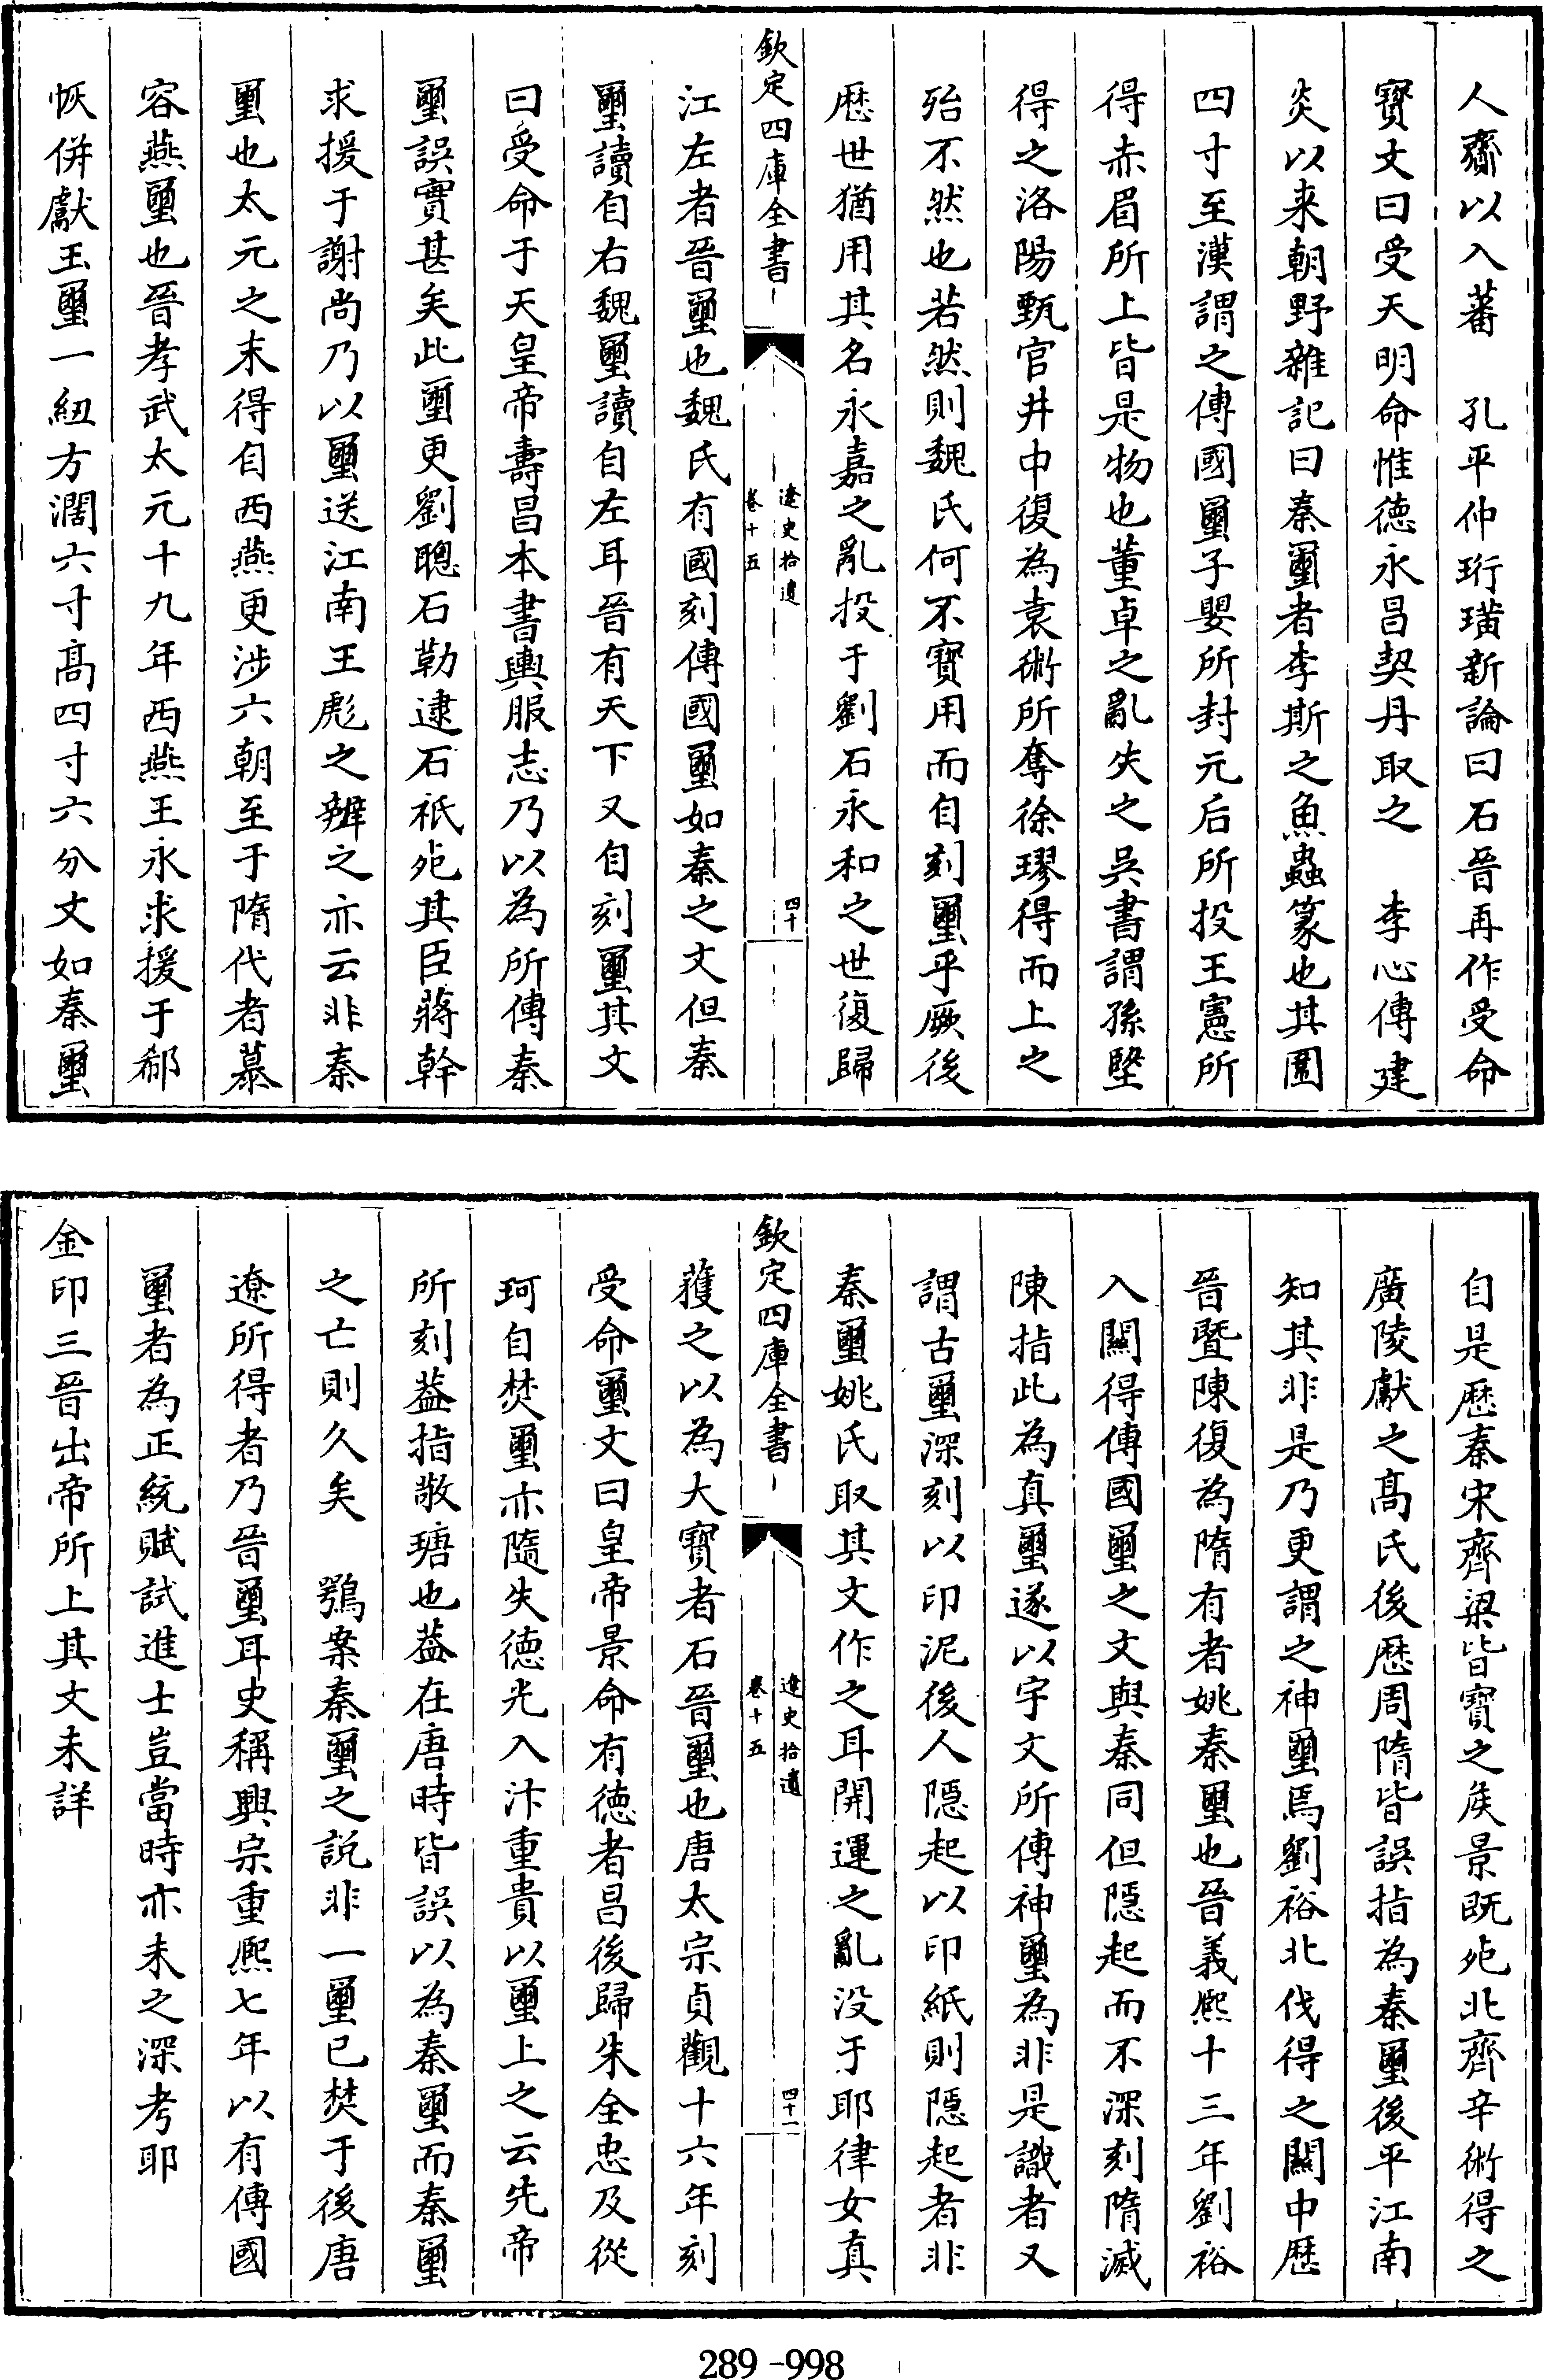 人齎以入蕃　孔平仲珩璜新論曰石晉再作受命
寳文曰受天明命惟徳永昌契丹取之　李心傳建
炎以来朝野雜記曰秦璽者李斯之魚蟲篆也其圍
四寸至漢謂之傳國璽子嬰所封元后所投王憲所
得赤眉所上皆是物也董卓之亂失之吳書謂孫堅
得之洛陽甄官井中復為袁術所奪徐璆得而上之
殆不然也若然則魏氏何不寳用而自刻璽乎厥後
歴世猶用其名永嘉之亂投于劉石永和之世復歸
欽定四庫全書
遼史拾遺
卷十五
四十
江左者晉璽也魏氏有國刻傳國璽如秦之文但秦
璽讀自右魏璽讀自左耳晉有天下又自刻璽其文
曰受命于天皇帝壽昌本書輿服志乃以為所傳秦
璽誤實甚矣此璽更劉聰石勒逮石祇死其臣蔣幹
求援于謝尚乃以璽送江南王彪之辨之亦云非秦
璽也太元之末得自西燕更渉六朝至于隋代者慕
容燕璽也晉孝武太元十九年西燕王永求援于郗
恢併獻玉璽一紐方濶六寸髙四寸六分文如秦璽
自是歴秦宋齊梁皆寳之侯景既死北齊辛術得之
廣陵獻之髙氏後歴周隋皆誤指為秦璽後平江南
知其非是乃更謂之神璽焉劉裕北伐得之闗中歴
晉暨陳復為隋有者姚秦璽也晉義熙十三年劉裕
入闗得傳國璽之文與秦同但隠起而不深刻隋滅
陳指此為真璽遂以宇文所傳神璽為非是識者又
謂古璽深刻以印泥後人隠起以印紙則隠起者非
秦璽姚氏取其文作之耳開運之亂没于耶律女真
欽定四庫全書
遼史拾遺
卷十五
四十一
䕶之以為大寳者石晉璽也唐太宗貞觀十六年刻
受命璽文曰皇帝景命有徳者昌後歸朱全忠及從
珂自焚璽亦隨失徳光入汴重貴以璽上之云先帝
所刻葢指敬瑭也葢在唐時皆誤以為秦璽而秦璽
之亡則久矣　鶚案秦璽之説非一璽已焚于後唐
遼所得者乃晉璽耳史稱興宗重熙七年以有傳國
璽者為正統賦試進士豈當時亦未之深考耶
金印三晉出帝所上其文未詳
289-998